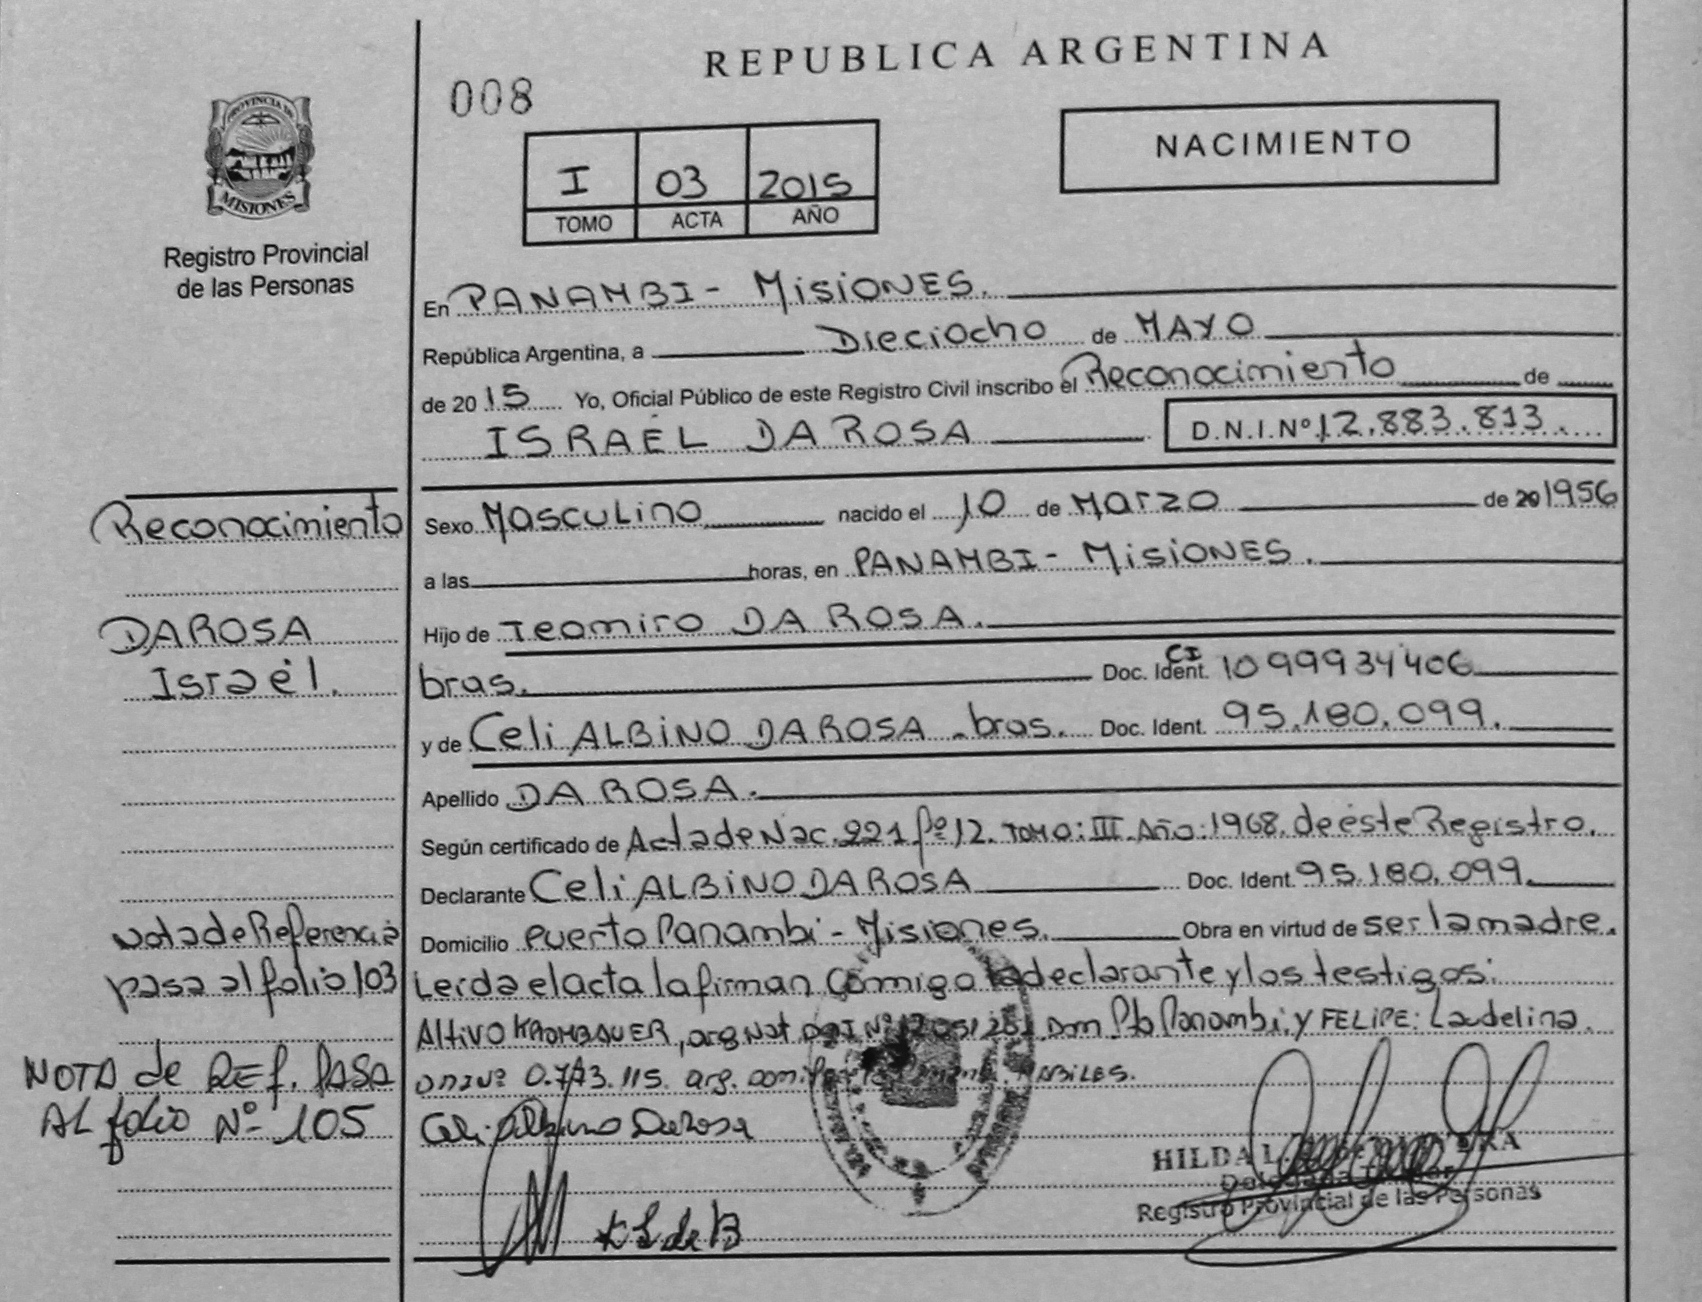 REPUBLICA ARGENTINA
008
NACIMIENTO
I 03 2015
TOMO ACTA AÑO
PROVINCIA DE
MISIONES
Registro Provincial
de las Personas
En PANAMBI - MisiONES.
República Argentina, a Dieciocho de MAYO
de 2015 Yo, Oficial Público de este Registro Civil inscribo el Reconocimiento de
ISRAEL DA ROSA D.N.I.Nº 12.883.813.
Sexo Masculino nacido el 10 de Marzo de 20 1956
a las horas, en PANAMBI - MisiONES.
Hijo de Teomiro DA ROSA.
bras. Doc. Ident. CI 1099934406
y de Celi ALBiNO DA ROSA - bras. Doc. Ident. 95.180.099.
Apellido DA ROSA.
Según certificado de Acta de Nac. 221 fº 12. TOMO: III. Año: 1968. de éste Registro.
Declarante Celi ALBiNO DA ROSA Doc. Ident. 95.180.099.
Domicilio Puerto Panambi - Misiones. Obra en virtud de ser la madre.
Leida el acta la firman Comigo la declarante y los testigos:
Altivo KROMBAUER, arg Nat DNI Nº Dom. Pto Panambi. y FELIPE: Laudelina
DNI Nº arg. Dom. HABILES.
Celi Albino DaRosa
LS de B
HILDA
Delegada Titular
Registro Provincial de las Personas
Reconocimiento
DA ROSA
Israel.
Nota de Referencia
pasa al folio 103
NOTA de REf. PASA
AL folio Nº 105